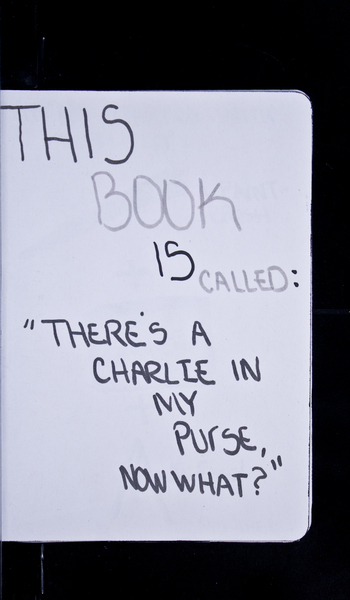 THIS
BOOK
IS
CALLED:
"THERE'S A
CHARLIE IN
MY
PURSE,
NOW WHAT?"